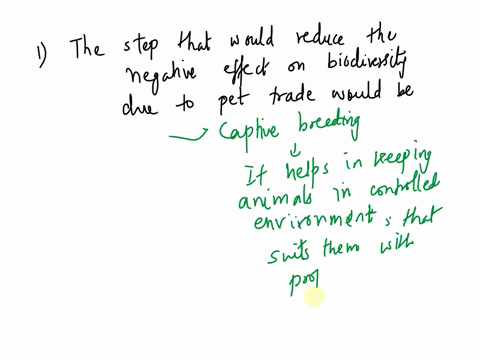 1) The step that would reduce the
negative effect on biodiversity
due to pet trade would be
→ Captive breeding
↓
It helps in keeping
animals in controlled
environment, that
suits them with
prop